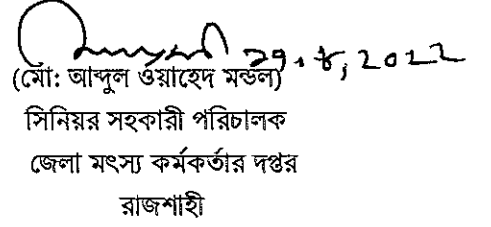 29.8,2022
(মো: আব্দুল ওয়াহেদ মন্ডল)
সিনিয়র সহকারী পরিচালক
জেলা মৎস্য কর্মকর্তার দপ্তর
রাজশাহী